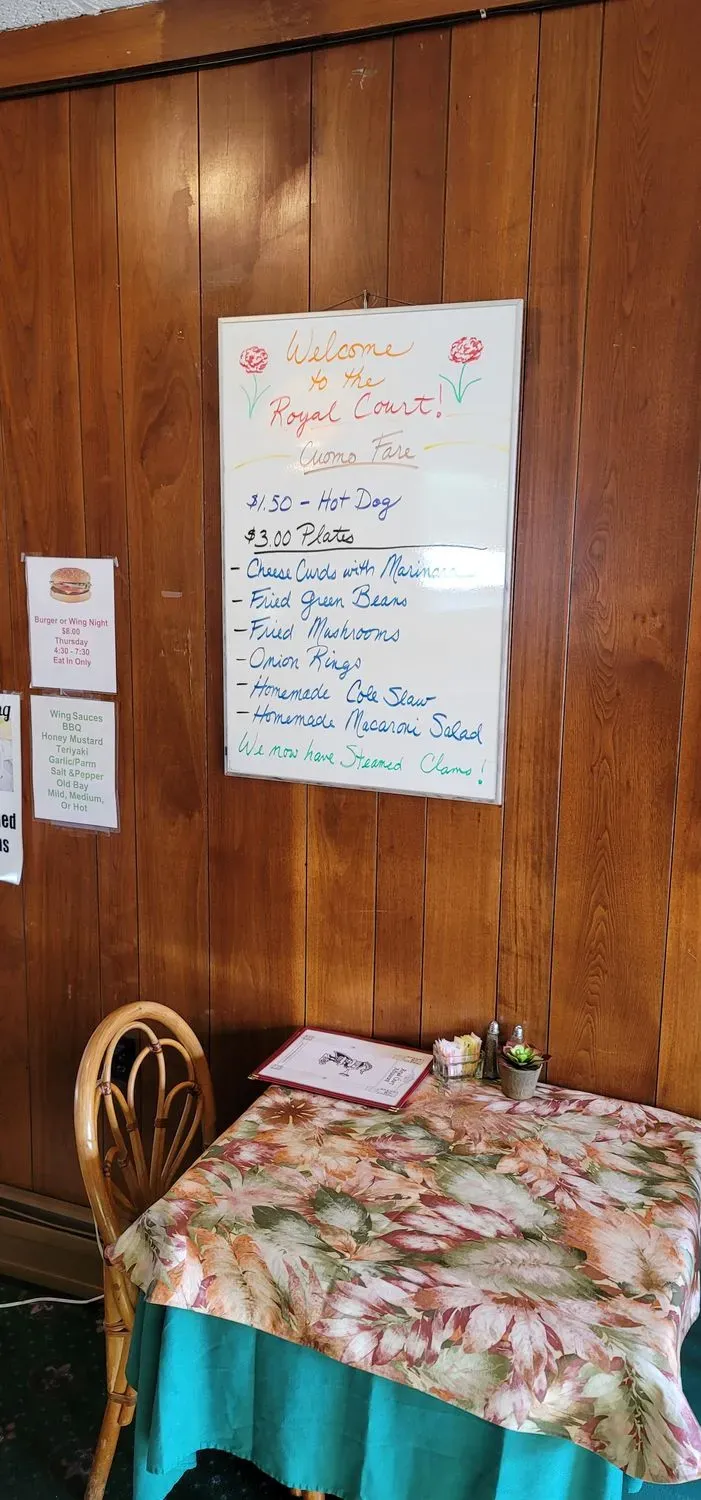 Welcome
to the
Royal Court!
Cuomo Fare
$1.50 - Hot Dog
$3.00 Plates
- Cheese Curds with Marinara
- Fried Green Beans
- Fried Mushrooms
- Onion Rings
- Homemade Cole Slaw
- Homemade Macaroni Salad
We now have Steamed Clams!
Burger or Wing Night
$8.00
Thursday
4:30 - 7:30
Eat In Only
Wing Sauces
BBQ
Honey Mustard
Teriyaki
Garlic/Parm
Salt &Pepper
Old Bay
Mild, Medium,
Or Hot